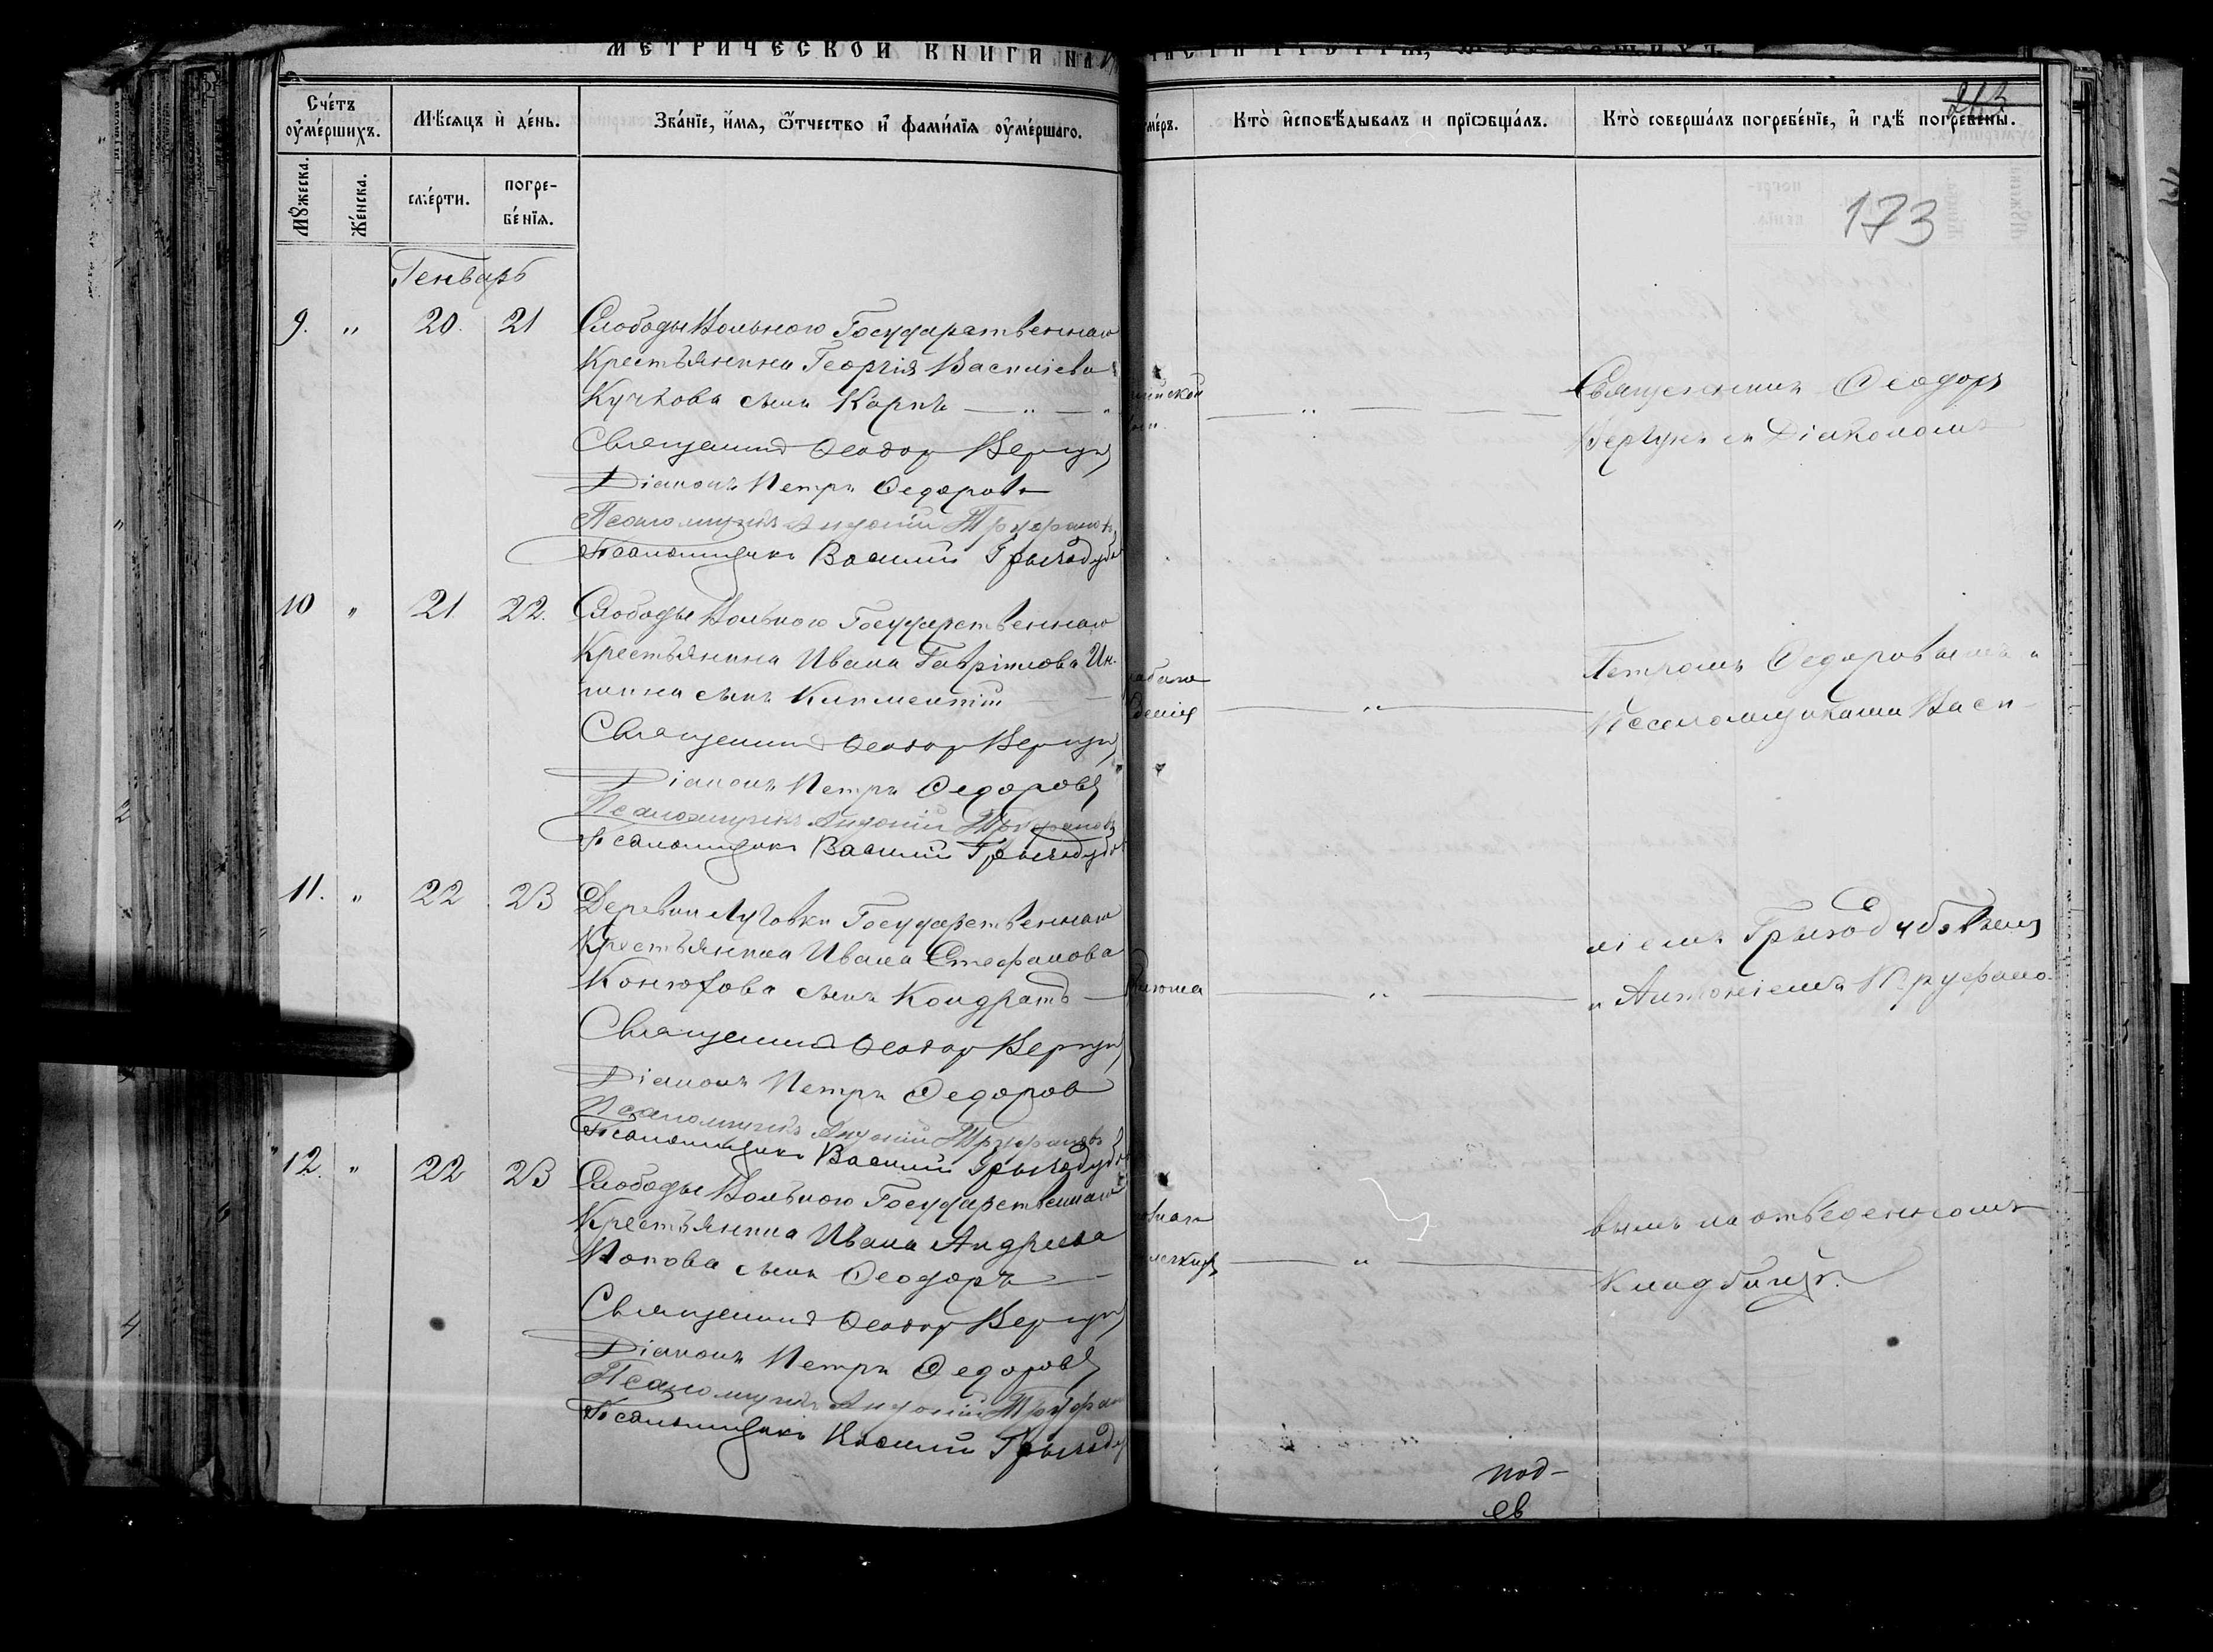 МЕТРИЧЕСКОЙ КНИГИ НА
Сче́тъ ᲂу҆ме́ршихъ.
Мѣ́сяцъ и҆ де́нь.
Зва́нїе, и҆́мя, ѻ҆́тчество и҆ фами́лїя ᲂу҆ме́ршаго.
Мꙋ́жеска.
Же́нска.
сме́рти.
погре-
бе́нїя.
Генварь
9. " 20. 21 Слободы Вольного Государственнаго
Крестьянина Георгія Василіева
Кучкова сынъ Карпъ — " — "
Священникъ Ѳеодор Вергун
Діаконъ Петръ Ѳедоровъ
Псаломщикъ Антоній Труфановъ
Псаломщикъ Василій
10 " 21. 22. Слободы Вольного Государственнаго
Крестьянина Ивана Гавріилова
сынъ Климентій
Священникъ Ѳеодор Вергун
Діаконъ Петръ Ѳедоровъ
Псаломщикъ Антоній Труфановъ
Псаломщикъ Василій
11. " 22 23 Деревни Луговки Государственнаго
Крестьянина Ивана Стефанова
Конюхова сынъ Кондратъ —
Священникъ Ѳеодор Вергун
Діаконъ Петръ Ѳедоров
Псаломщикъ Антоній Труфановъ
Псаломщикъ Василій
12. " 22 23 Слободы Вольного Государственнаго
Крестьянина Ивана Андреева
Попова сынъ Ѳеодоръ —
Священникъ Ѳеодор Вергун
Діаконъ Петръ Ѳедоровъ
Псаломщикъ Антоній Труфан
Псаломщикъ Василій
213
ме́ръ.
Кто̀ и҆сповѣ́дывалъ и прїѻбща́лъ.
Кто̀ соверша́лъ погребе́нїе, и҆ гдѣ̀ погребены.
173
— " —
Священникъ Ѳеодоръ
Вергунъ съ Діакономъ
— " —
Петромъ Ѳедоровымъ и
Псаломщиками Васи-
— " —
ліемъ
и Антоніемъ Труфано-
— " —
вымъ на отведенномъ
Кладбищѣ.
под-
ев